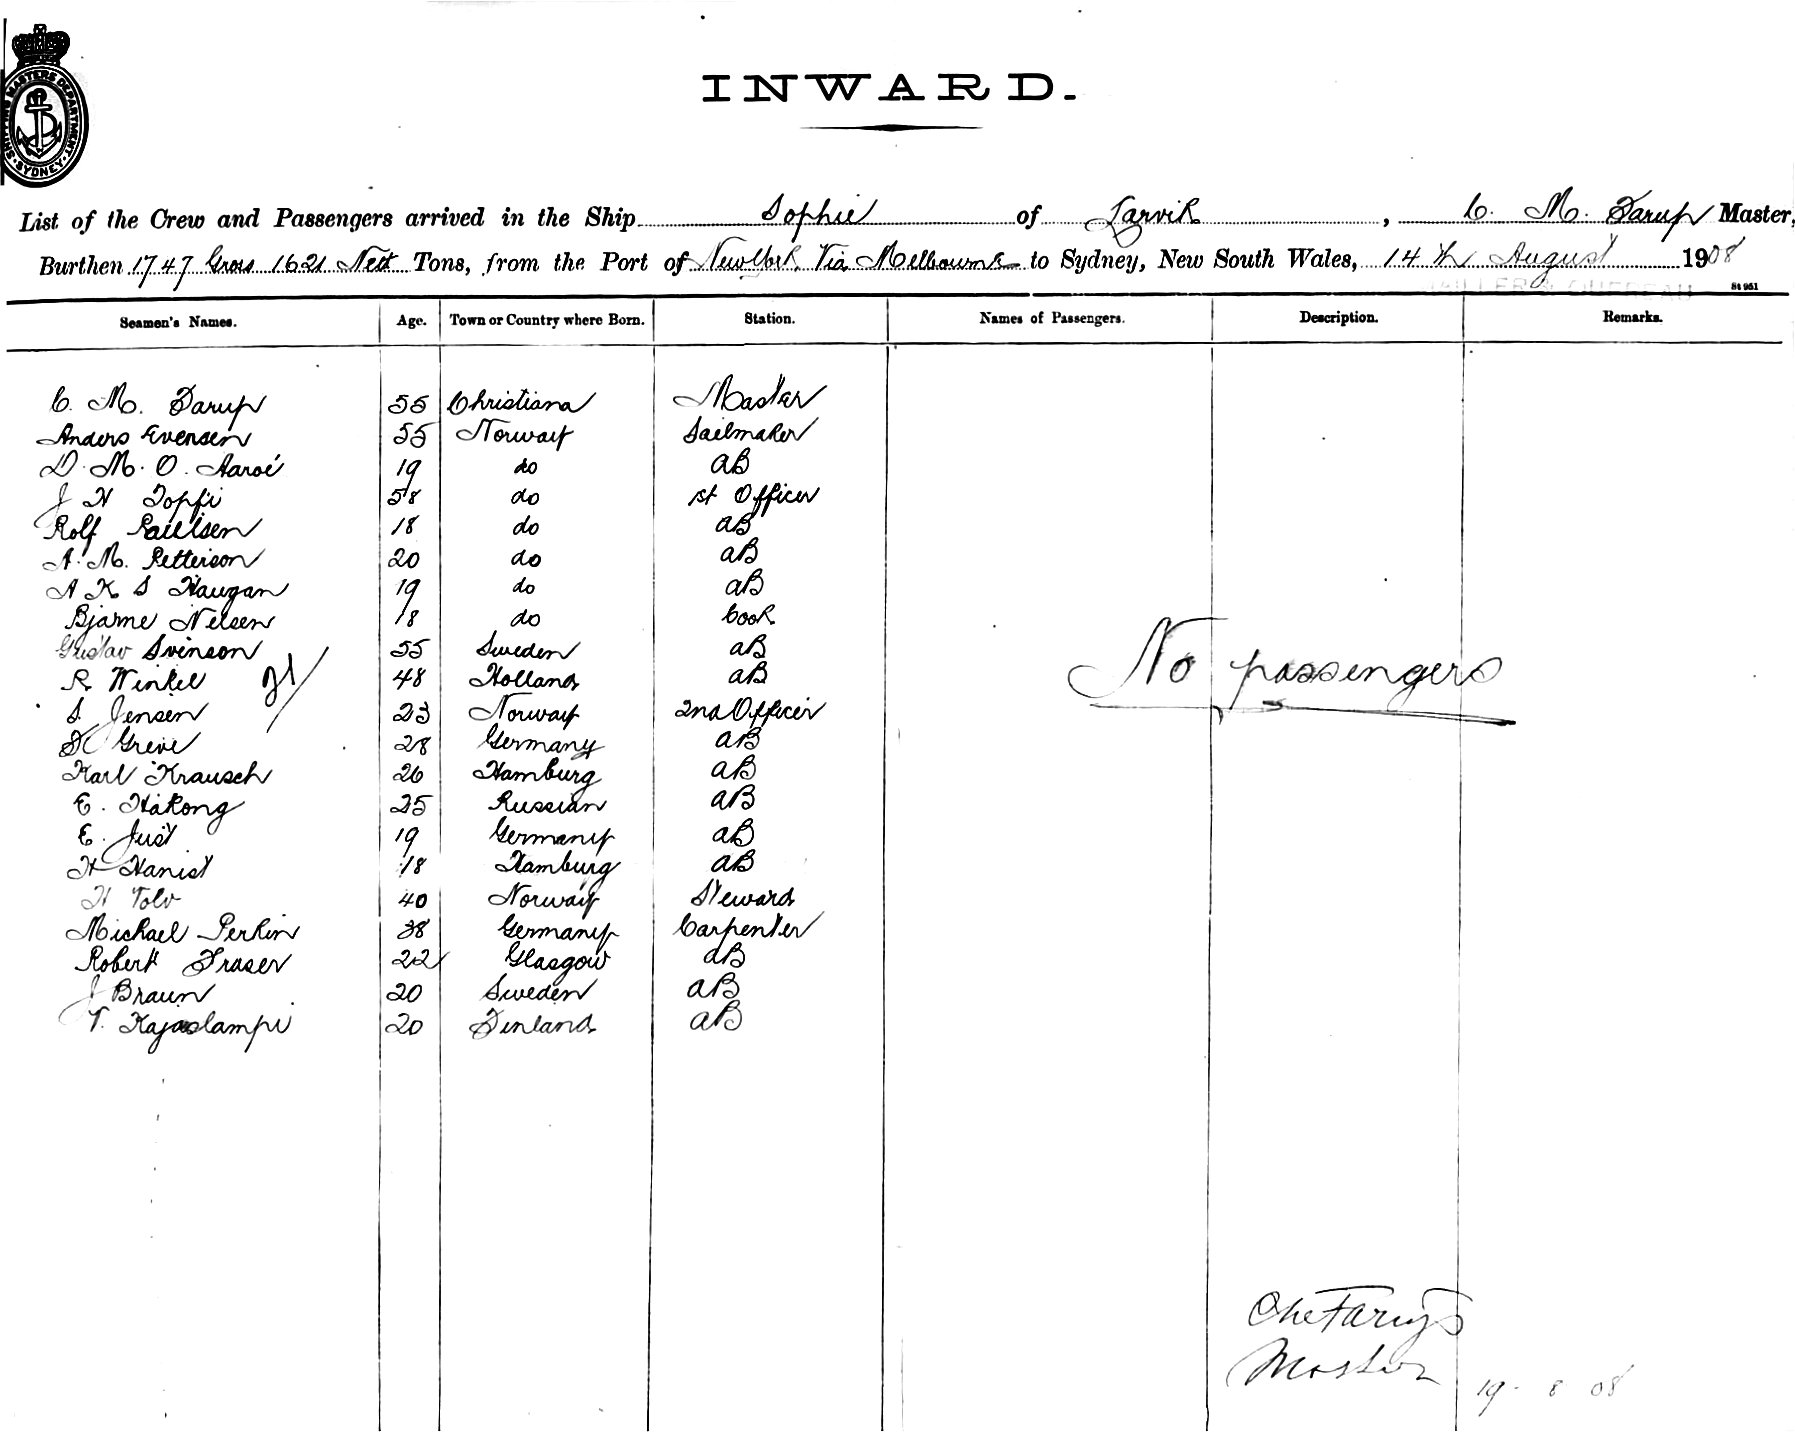 SHIPPING MASTERS DEPARTMENT · SYDNEY ·
INWARD.
List of the Crew and Passengers arrived in the Ship Sophie of Larvik, C. M. Tarup Master,
Burthen 1747 Gross 1621 Nett Tons, from the Port of New York Via Melbourne to Sydney, New South Wales, 14th August 1908
St 951
Seamen's Names. Age. Town or Country where Born. Station. Names of Passengers. Description. Remarks.
C. M. Tarup 55 Christiana Master
Anders Evensen 55 Norway Sailmaker
D. M. O. Aaroé 19 do AB
J H Topfi 58 do 1st Officer
Rolf Paulsen 18 do AB
A. M. Petterson 20 do AB
A K S Haugan 19 do AB
Bjarne Nelsen 18 do Cook
Gustav Svinson 55 Sweden AB
R Winkel 48 Holland AB
21/
S. Jensen 23 Norway 2nd Officer
Greve 28 Germany AB
Karl Krausch 26 Hamburg AB
E. Hakong 25 Russian AB
E. Just 19 Germany AB
H Hanist 18 Hamburg AB
H Tolv 40 Norway Steward
Michael Perkin 38 Germany Carpenter
Robert Fraser 22 Glasgow AB
J Braun 20 Sweden AB
T. Kajaslampi 20 Finland AB
No passengers
Tarup
Master 19 - 8 08